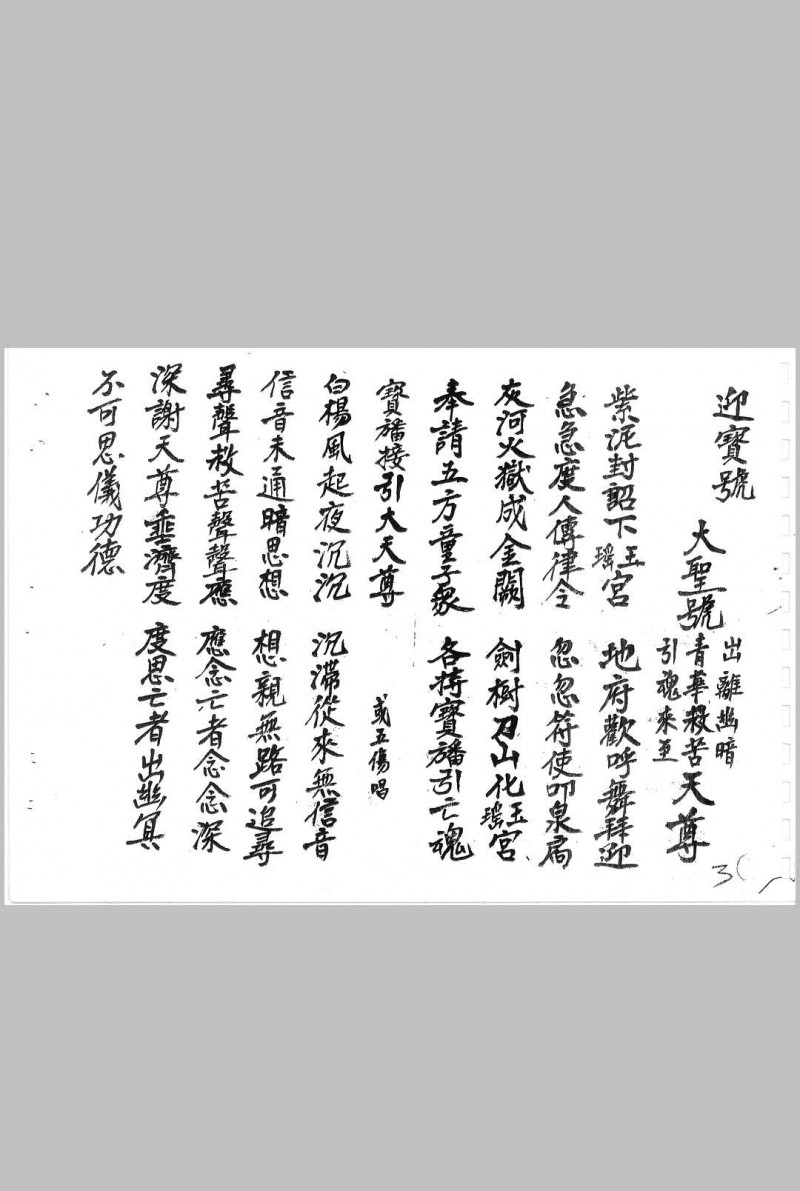 迎寶號
大聖號 出離幽暗 青華救苦 引魂來至 天尊
紫泥封詔下玉瑤宮 地府歡呼舞拜迎
急急度人傳律令 忽忽符使叩泉扃
灰河火獄成金闕 劍樹刀山化玉瑤宮
奉請五方童子衆 各持寶旛引亡魂
寶旛接引大天尊 或五傷唱
白楊風起夜沉沉 沉滯從來無信音
信音未通暗思想 想親無路可追尋
尋聲救苦聲聲應 應念亡者念念深
深謝天尊垂濟度 度思亡者出幽冥
不可思儀功德
3